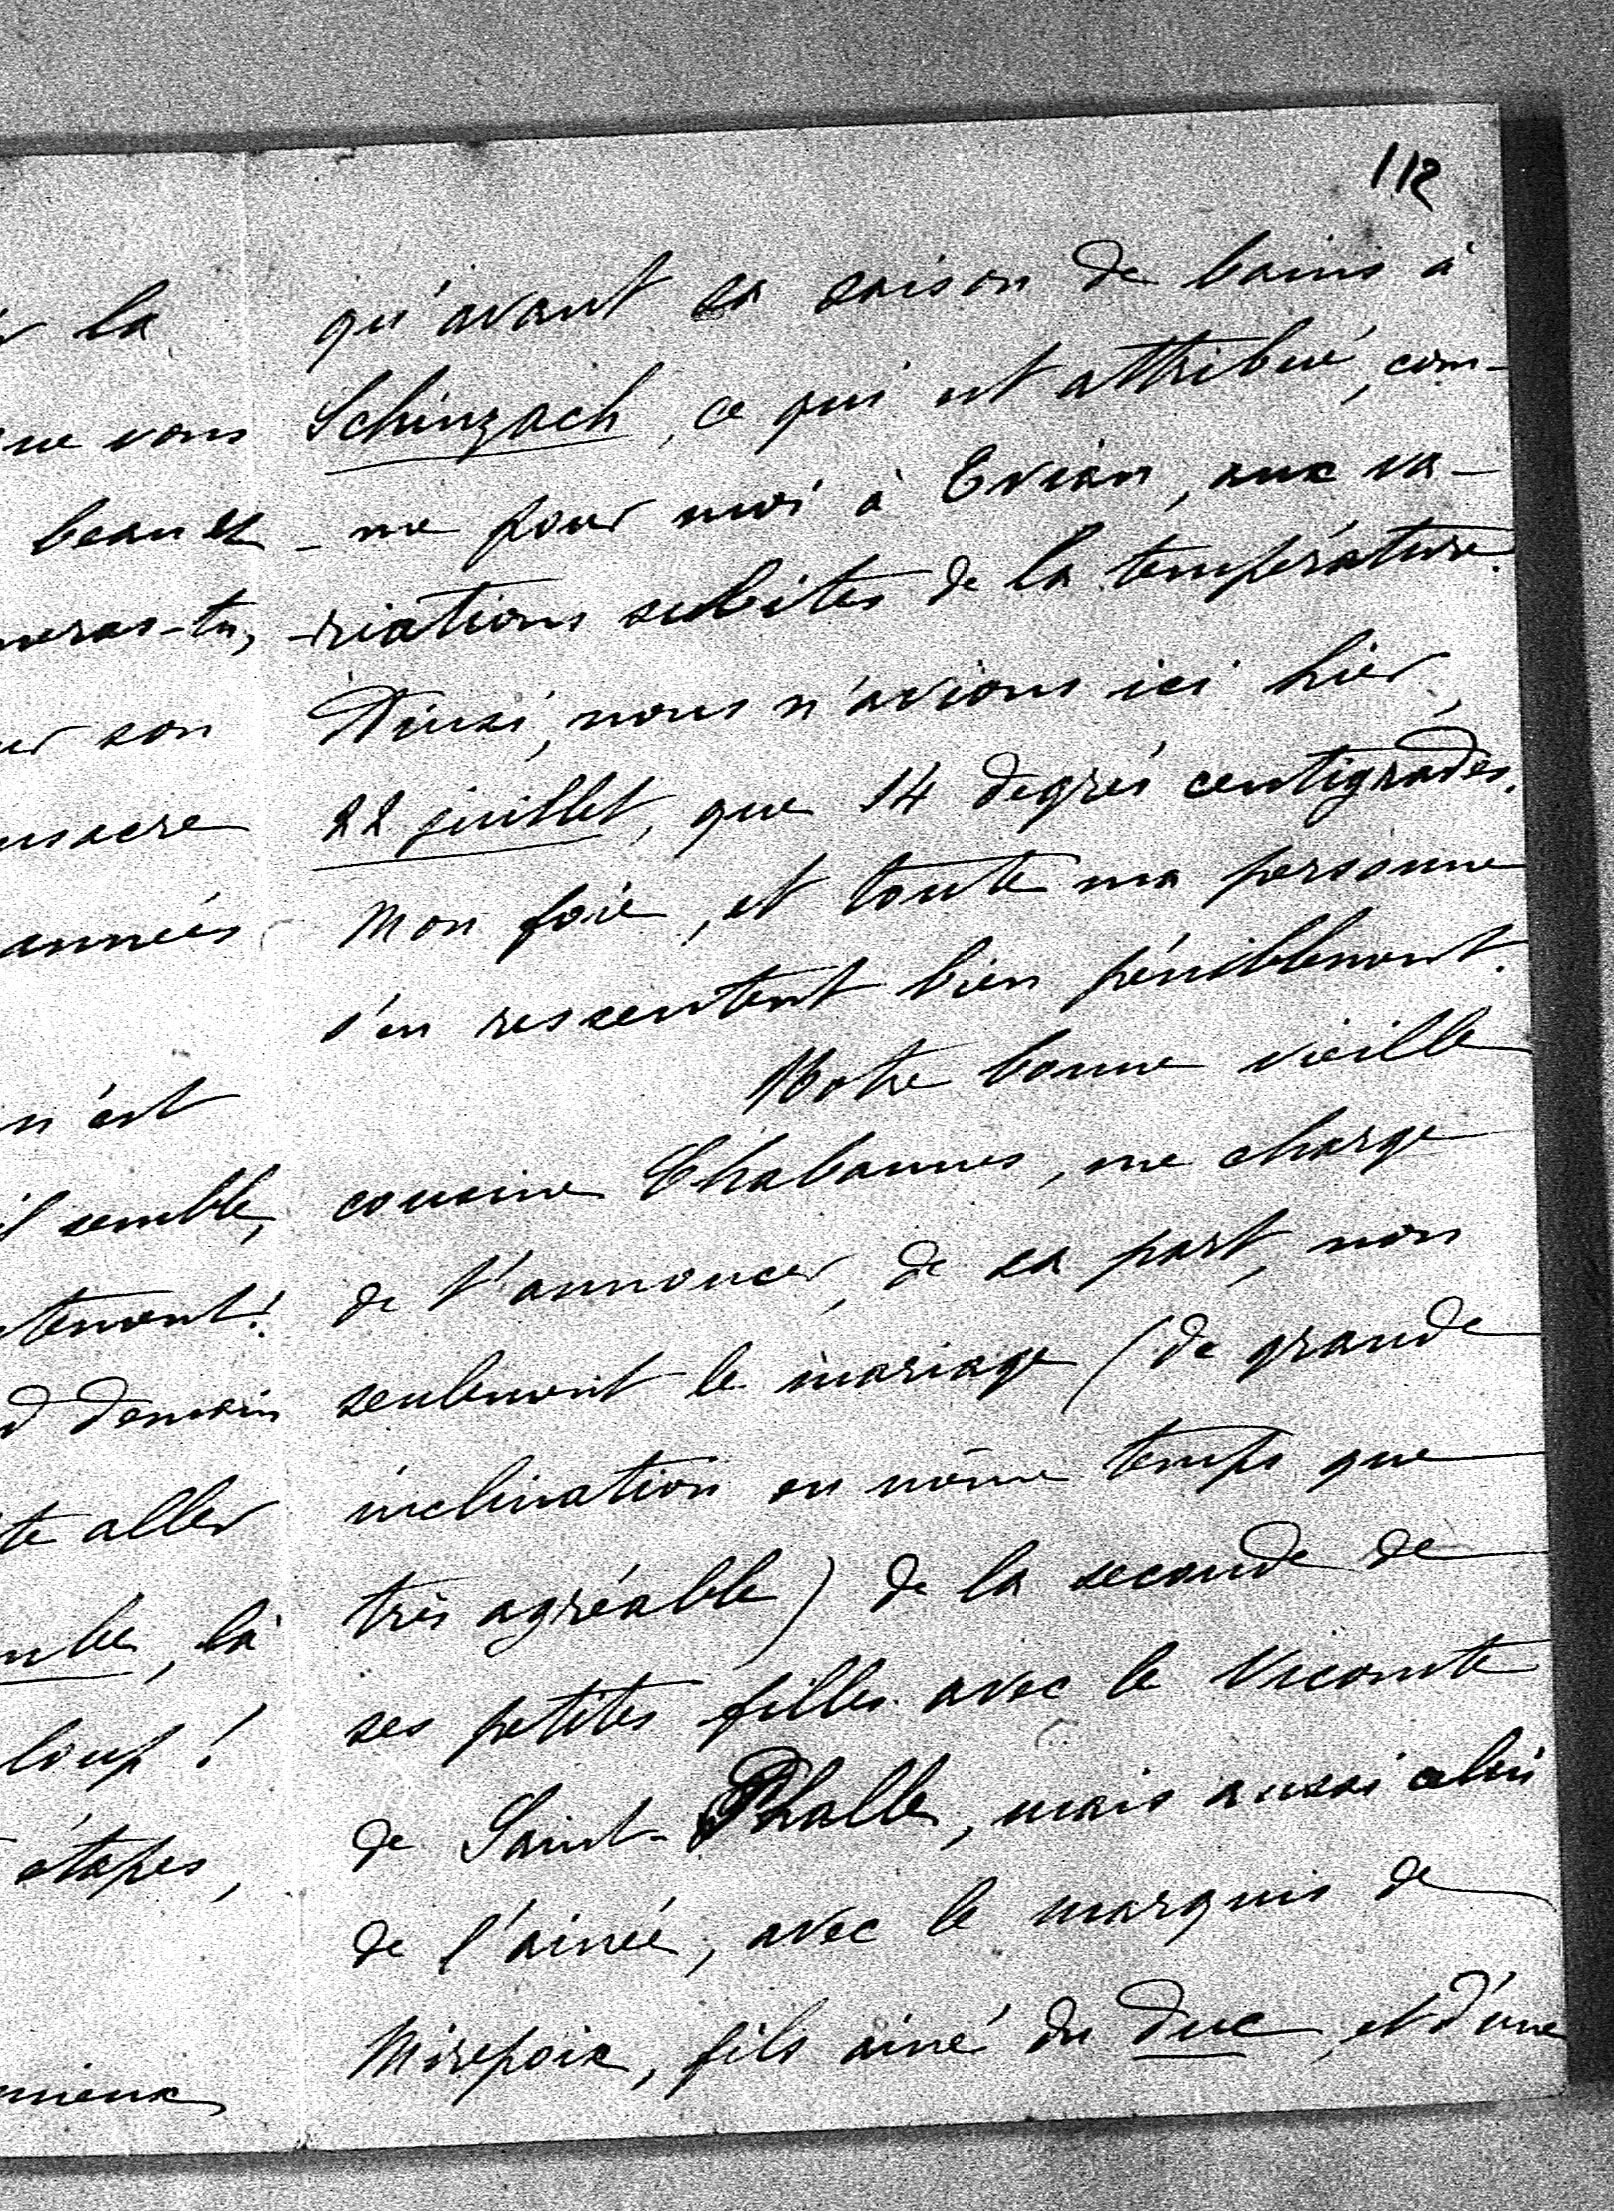 112
r la
ue vous
beau et
neras-tu,
ur son
nsacre
années
n'est
il semble,
tement!
d demain
te aller
mbe, là
loup!
étapes,
mieux
qu'avant sa saison de bains à
Schinzach, ce qui est attribué, com-
-me pour moi à Evian, aux va-
-riations subites de la température.
Ainsi, nous n'avions ici hier,
22 juillet, que 14 degrés centigrades.
Mon foie, et toute ma personne
s'en rescentent bien péniblement.
Notre bonne vieille
cousine Chabannes, me charge
de t'annoncer, de sa part, non
seulement le mariage (de grande
inclination en même temps que
très agréable) de la seconde de
ses petites filles avec le Vicomte
de Saint-Phalle, mais aussi celui
de l'ainée, avec le marquis de
Mirepoix, fils ainé du duc, et d'une